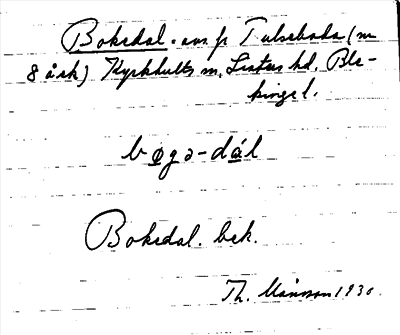 Bokedal. avs på Tulseboda (m
8 årh) Kyrkhults sn, Listers hd, Ble-
kinge l.
bøgə-dál
Bokedal. bek.
Th. Månsson 1930.